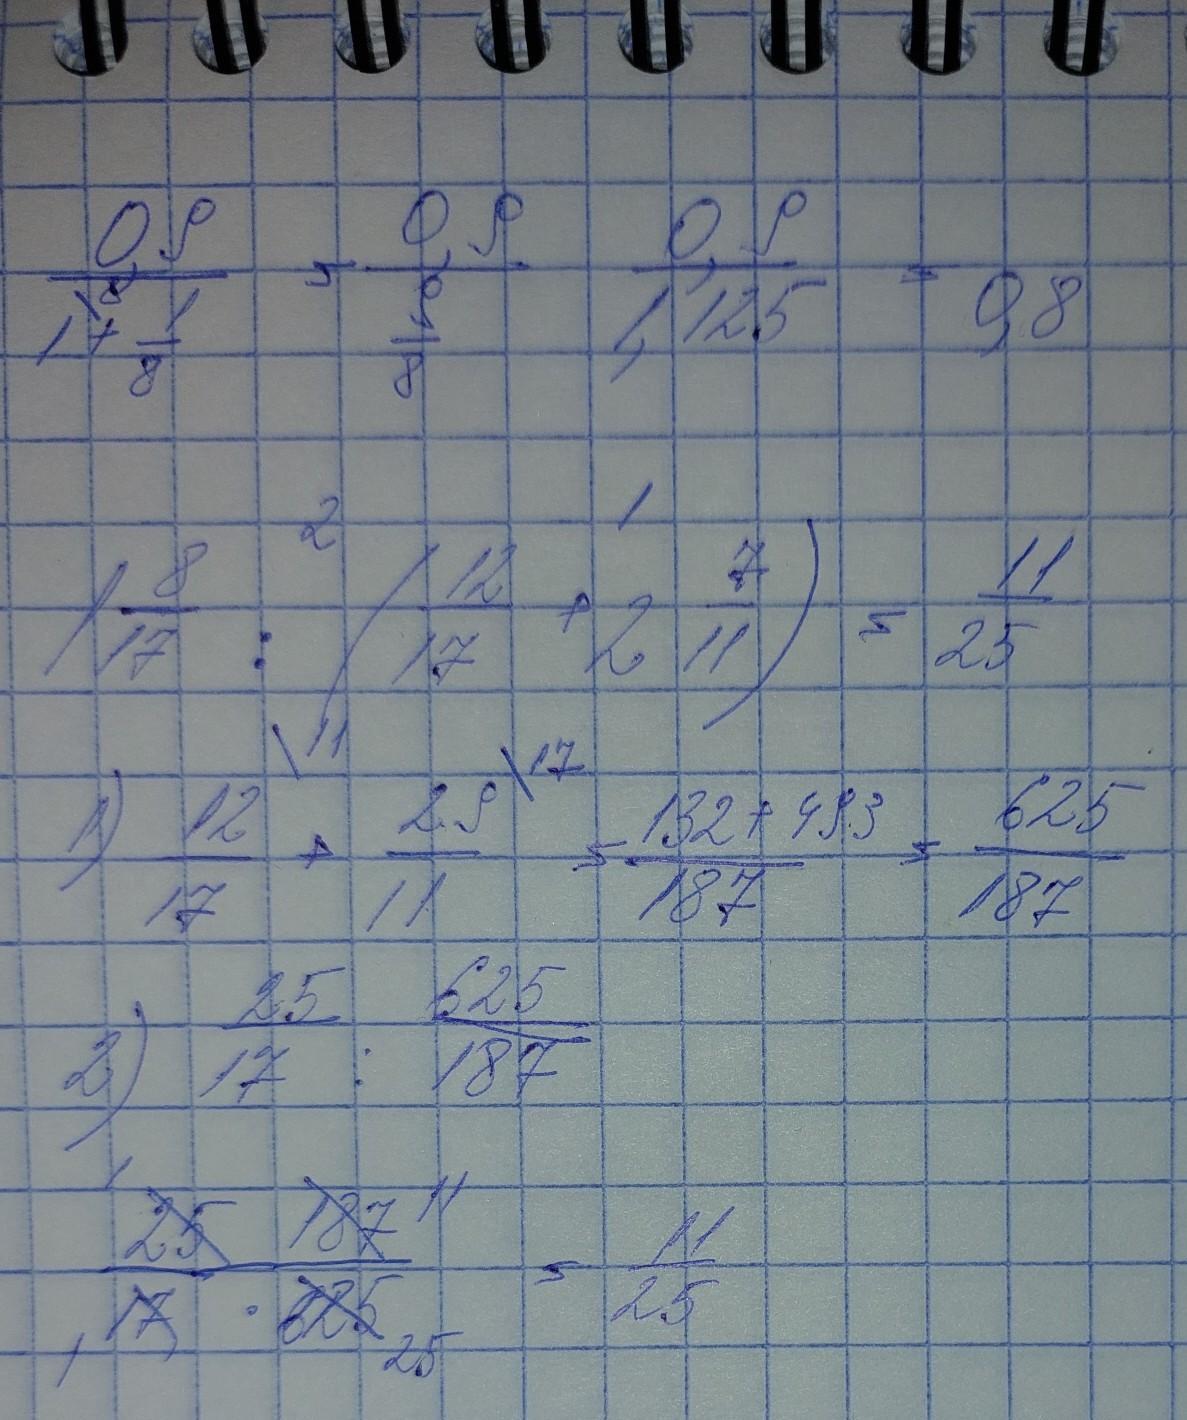 0,9/(1\8 + 1/8) = 0,9/(9/8) 0,9/1,125 = 0,8
2 1
1 8/17 : (12/17 + 2 7/11) = 11/25
1) 12/17 \11 + 29/11 \17 = (132 + 493)/187 = 625/187
2) 25/17 : 625/187
1 25 187 11 / 1 17 · 625 25 = 11/25